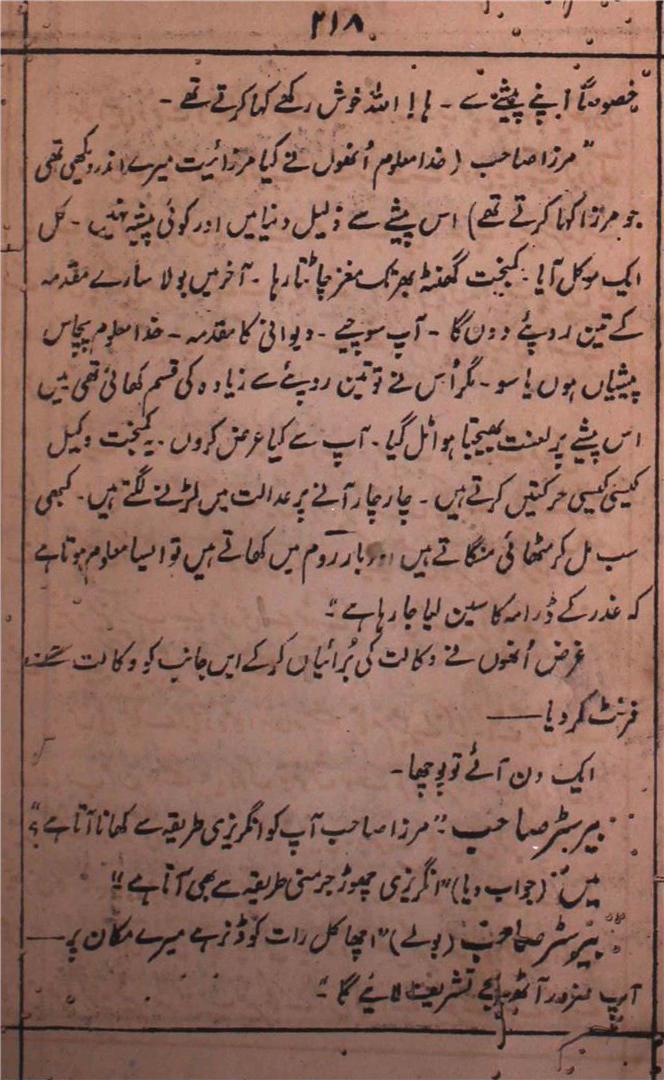 ۲۱۸
خصوصاً اپنے پیشے سے ۔ ہا! اللہ خوش رکھے کہا کرتے تھے ۔
"مرزا صاحب (خدا معلوم اُنھوں نے کیا مرزائیت میرے اندر دیکھی تھی
جو مرزا کہا کرتے تھے) اس پیشے سے ذلیل دنیا میں اور کوئی پیشہ نہیں ۔ کل
ایک موکل آیا ۔ کمبخت گھنٹہ بھر تک مغز چاٹتا رہا ۔ آخر میں بولا سارے مقدمہ
کے تین روپئے دوں گا ۔ آپ سوچیے ۔ دیوانی کا مقدمہ ۔ خدا معلوم پچاس
پیشیاں ہوں یا سو ۔ مگر اُس نے تو تین روپئے سے زیادہ کی قسم کھائی تھی میں
اس پیشے پر لعنت بھیجتا ہوا ٹل گیا ۔ آپ سے کیا عرض کروں ۔ یہ کمبخت وکیل
کیسی کیسی حرکتیں کرتے ہیں ۔ چار چار آنے پر عدالت میں لڑنے لگتے ہیں ۔ کبھی
سب مل کر مٹھائی منگاتے ہیں اور بار روم میں کھاتے ہیں تو ایسا معلوم ہوتا ہے
کہ غدر کے ڈرامہ کا سین لیا جا رہا ہے"۔
غرض اُنھوں نے وکالت کی بُرائیاں کر کے ایں جانب کو وکالت سے
فرنٹ کر دیا ——
ایک دن آئے تو پوچھا ۔
بیرسٹر صاحب :" مرزا صاحب آپ کو انگریزی طریقہ سے کھانا آتا ہے؟"
میں : (جواب دیا) "انگریزی چھوڑ جرمنی طریقہ سے بھی آتا ہے"!
بیرسٹر صاحب : (بولے) "اچھا کل رات کو ڈنر ہے میرے مکان پر ——
آپ ضرور آٹھ بجے تشریف لائیے گا"۔